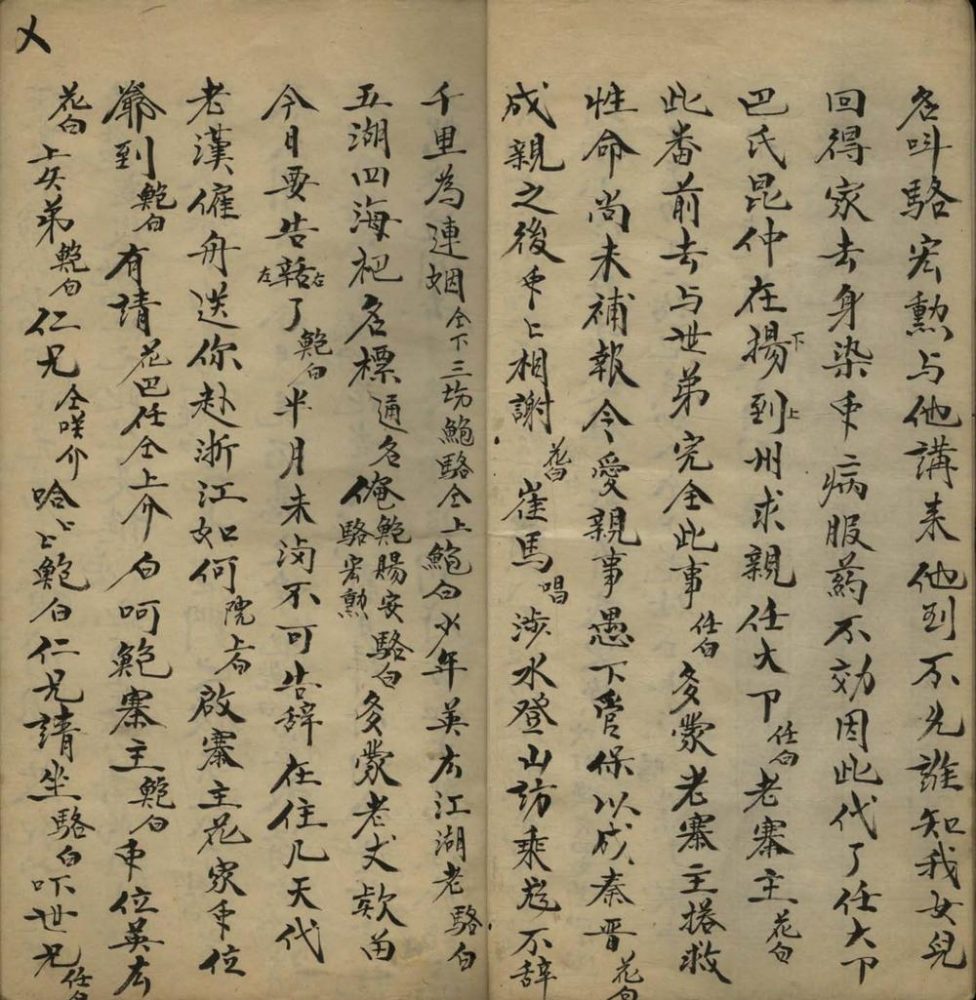 名叫駱宏勲与他講来他到不允誰知我女兒
回得家去身染重病服葯不効因此代了任大卩
巴氏昆仲在揚下到上州求親任大卩任白老寨主花白
此番前去与世弟完全此事任白多蒙老寨主搭救
性命尚未補報令愛親事愚下管保以成秦晋花白
成親之後重ヒ相謝花白崔馬唱涉水登山訪乘不辞
千里為連姻仝下三塲鮑駱仝上鮑白少年英玄江湖老駱白
五湖四海把名標通名俺鮑賜安駱宏勲駱白多蒙老丈欵留
今日要告辞左右了鮑白半月未滿不可告辞在住几天代
老漢僱舟送你赴浙江如何院上白啟寨主花家重位
爺到鮑白有請花巴任仝上介白呵鮑寨主鮑白重位英玄
花白上矢弟鮑白仁兄仝咲介哈ヒ鮑白仁兄請坐駱白吓世兄任白